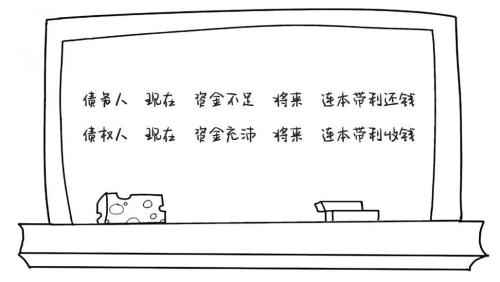 债务人 现在 资金不足 将来 连本带利还钱
债权人 现在 资金充沛 将来 连本带利收钱